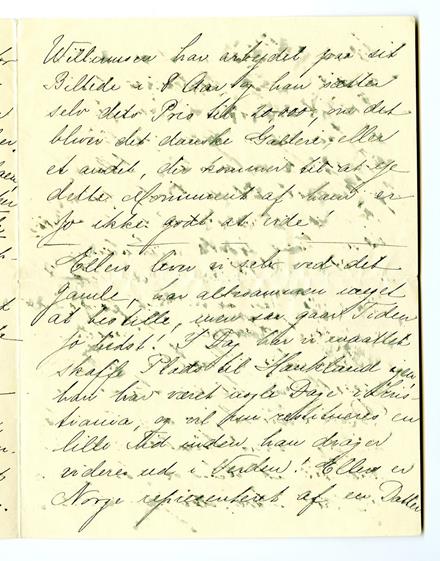 Willumsen har arbejdet paa sit
Billede i 8 Aar og han sætter
selv dets Pris til 20.000, om det
bliver det danske Galleri eller
et andet, der kommer til at eje
dette Monument af ham er
jo ikke godt at vide!
Ellers lever vi selv ved det
gamle, har altsammen meget
at bestille, men saa gaar Tiden
jo bedst! I Dag har vi maattet
skaffe Plads til Haukland igen
han har været nogle Dage i Kris
tiania, og vil kun restitueres en
lille Tid inden han drager
videre ud i Verden! Ellers er
Norge repræsenteret af en Datter